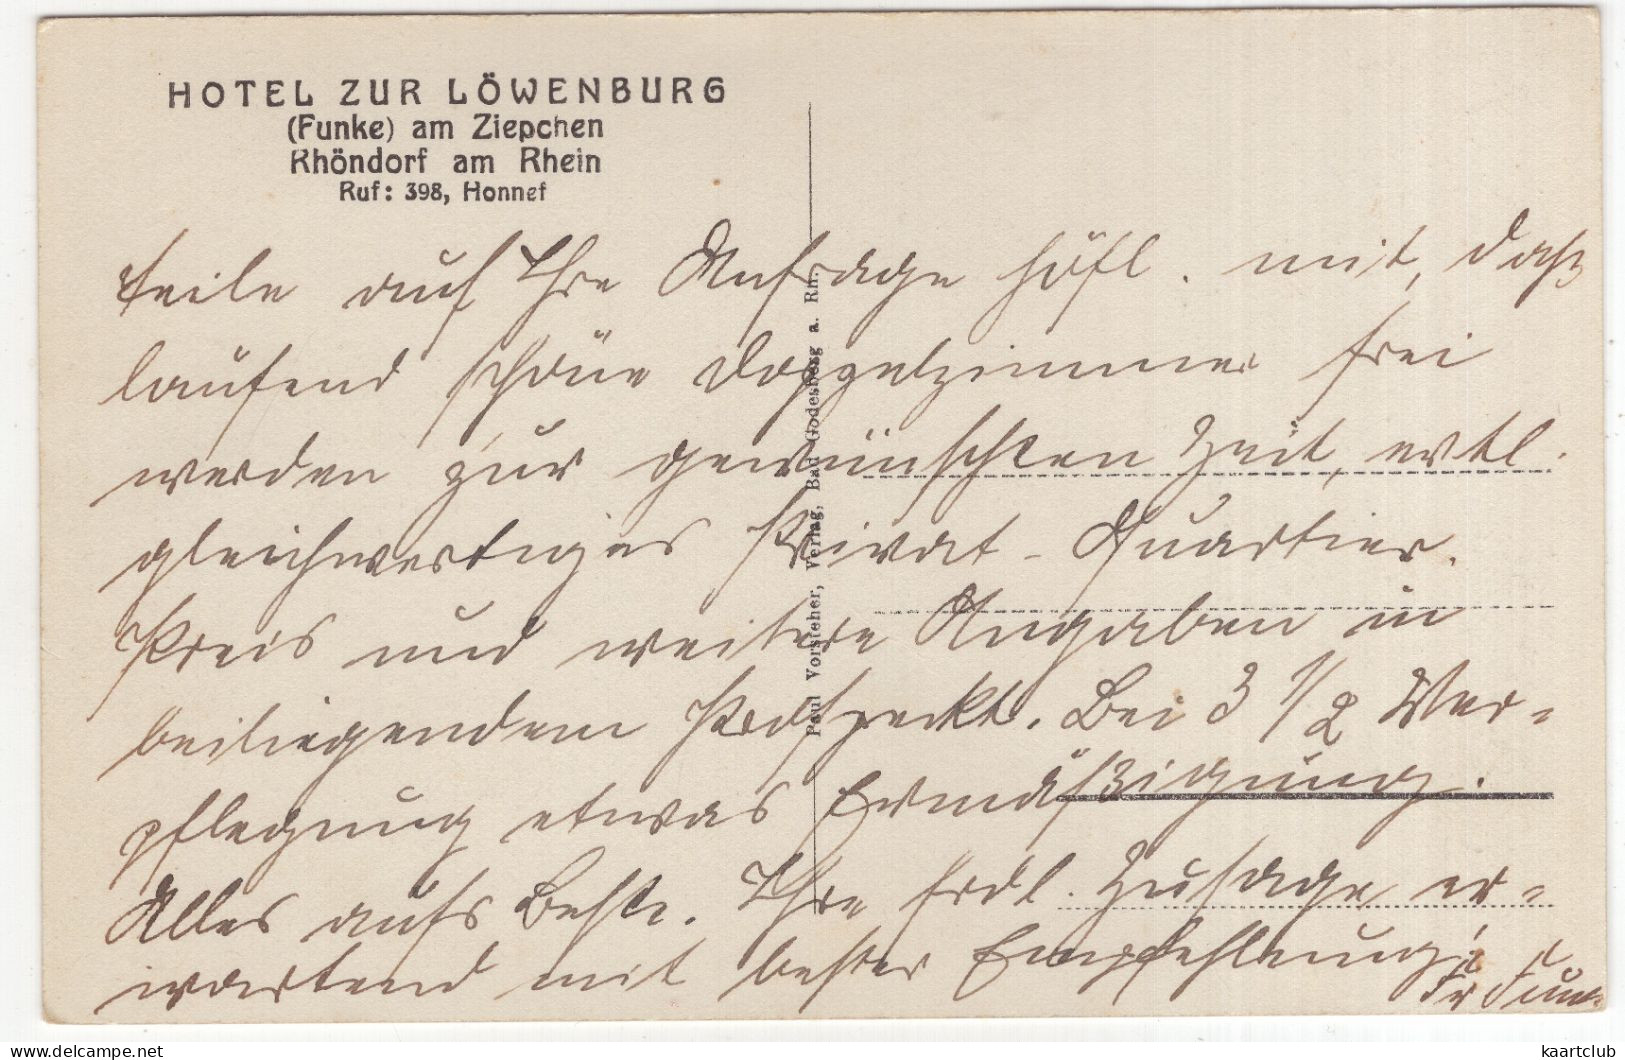 HOTEL ZUR LÖWENBURG
(Funke) am Ziepchen
Rhöndorf am Rhein
Ruf: 398, Honnef
teile auf Ihre Anfrage höfl. mit, daß
laufend schöne Doppelzimmer frei
werden zur gewünschten Zeit, evtl.
gleichwertiges Privat-Quartier.
Preis und weitere Angaben in
beiliegendem Prospekt. Bei 3 1/2 Ver=
pflegung etwas Ermäßigung.
Alles aufs Beste. Ihre frdl. Zusage er=
wartend mit bester Empfehlung
Fr Funke
Paul Vorsteher, Verlag, Bad Godesberg a. Rh.
https://www.delcampe.net
kaartclub